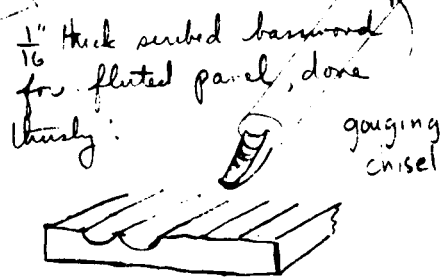 1/16" thick scribed basswood
for fluted panel, done
thusly:
gouging
chisel